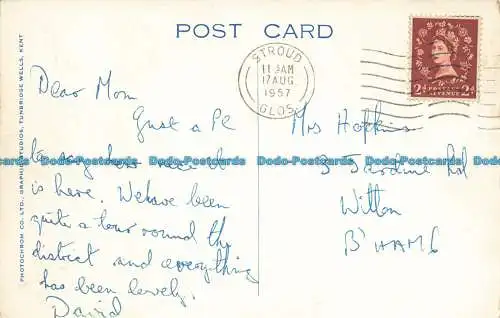 POST CARD
STROUD
11 30AM
17 AUG
1957
GLOS.
POSTAGE
REVENUE
2d 2d
Dear Mom
Just a Pc
to say how
is here. We have been
quite a tour round the
district and everything
has been lovely.
David
Mrs Hopkins
3 Rd
Witton
B'HAM 6
PHOTOCHROM CO. LTD., GRAPHIC STUDIOS, TUNBRIDGE WELLS, KENT
Dodo-Postcards Dodo-Postcards Dodo-Postcards Dodo-Postcards Dodo-Postcards Dodo-Postcards